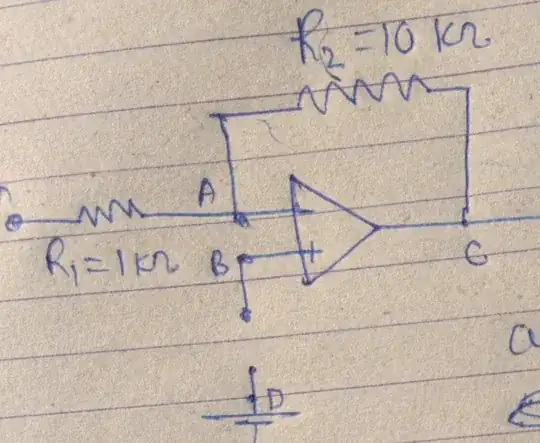 R₂ = 10 KΩ
A
R₁ = 1KΩ
B
-
+
C
D
a